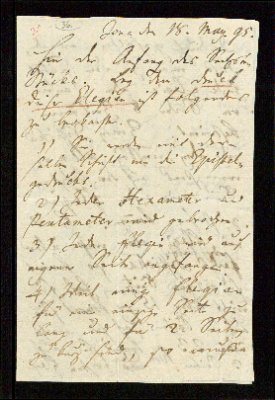 Jena den 18. May 95.
Hier der Anfang des Sechsten
Stücks. Bey dem Druck
dieser Elegien ist folgendes
zu beobachten.
1) Sie werden mit
selben Schrift wie die Episteln
gedruckt.
2) Jeder Hexameter und
Pentameter wird gebrochen.
3) Jede Elegie wird auf
eigener Seite angefangen.
4) Weil einige Elegien
für eine einzige Seite zu
lang und für 2 Seiten
zu kurz sind, so